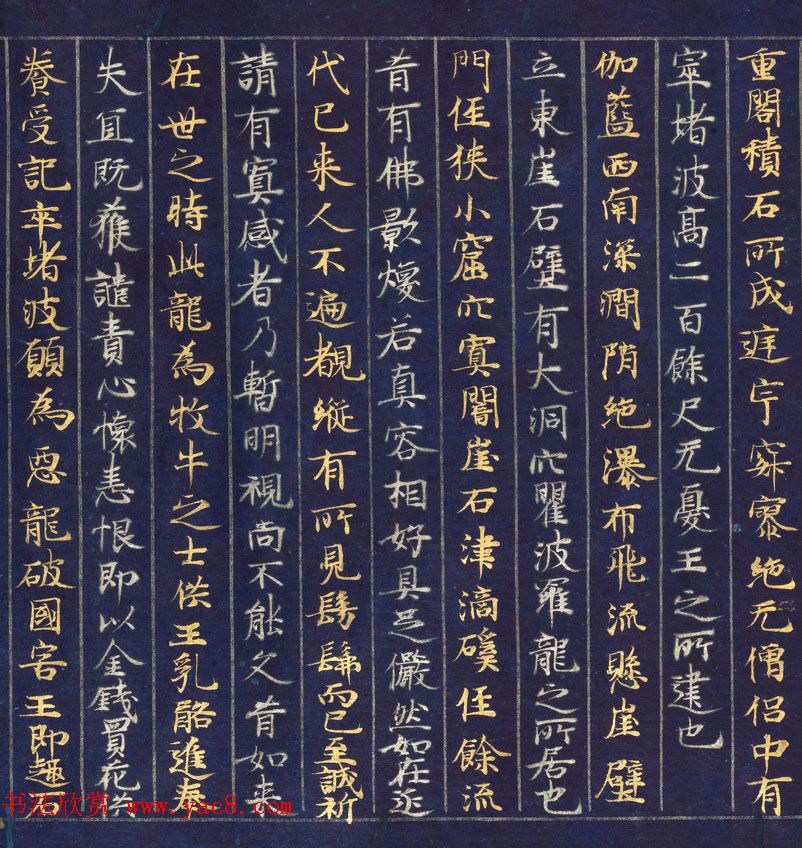 重閣積石所成庭宇寂寥絶无僧侣中有
窣堵波髙二百餘尺无憂王之所建也
伽藍西南深澗陗絶瀑布飛流懸崖壁
立東崖石壁有大洞穴瞿波羅龍之所居也
門侄狹小窟穴冥闇崖石津滴磎侄餘流
昔有佛影煥若真容相好具足儼然如在近
代已来人不遍覩縱有所見髣髴而已至誠祈
請有冥感者乃暫明視尚不能久昔如来
在世之時此龍為牧牛之士供王乳酪進奉
失冝既獲譴責心懷恚恨即以金錢買花供
養受記窣堵波願為惡龍破國害王即趣
书法欣赏 www.yac8.com